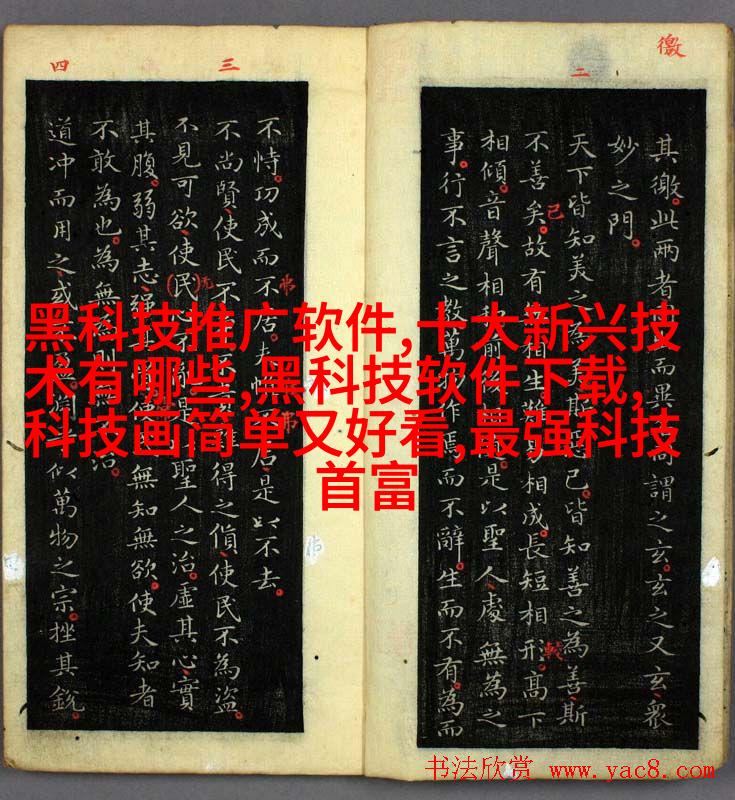 徼
二
其徼。此兩者而異謂之玄。玄之又玄、眾
妙之門。
天下皆知美之為美斯已。皆知善之為善斯
不善矣。故有相生難相成。長短相形。高下
相傾。音聲相是以聖人處無為之
事。行不言之教萬作焉而不辭。生而不有。為而
已
較
三
四
不恃。功成而不居。夫居是以不去。
不尚賢、使民不難得之貨、使民不為盜。
不見可欲、使民聖人之治。虛其心、實
其腹。弱其志、強使無知無欲。使夫知者
不敢為也。為無則治。
道冲而用之、或似萬物之宗。挫其銳。
无
弗
弗
黑科技推广软件,十大新兴技
术有哪些,黑科技软件下载,
科技画简单又好看,最强科技
首富
书法欣赏 www.yac8.com